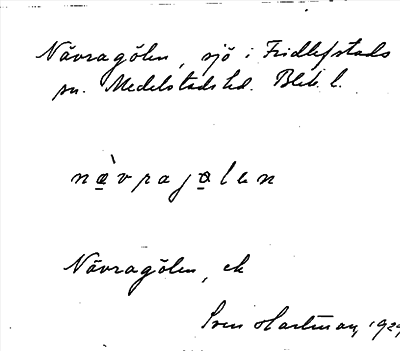 Nävragölen, sjö i Fridlefstads
sn. Medelstads hd. Blek. l.
næ̀vrajøl en
Nävragölen, ek
Sven Hartman, 1929